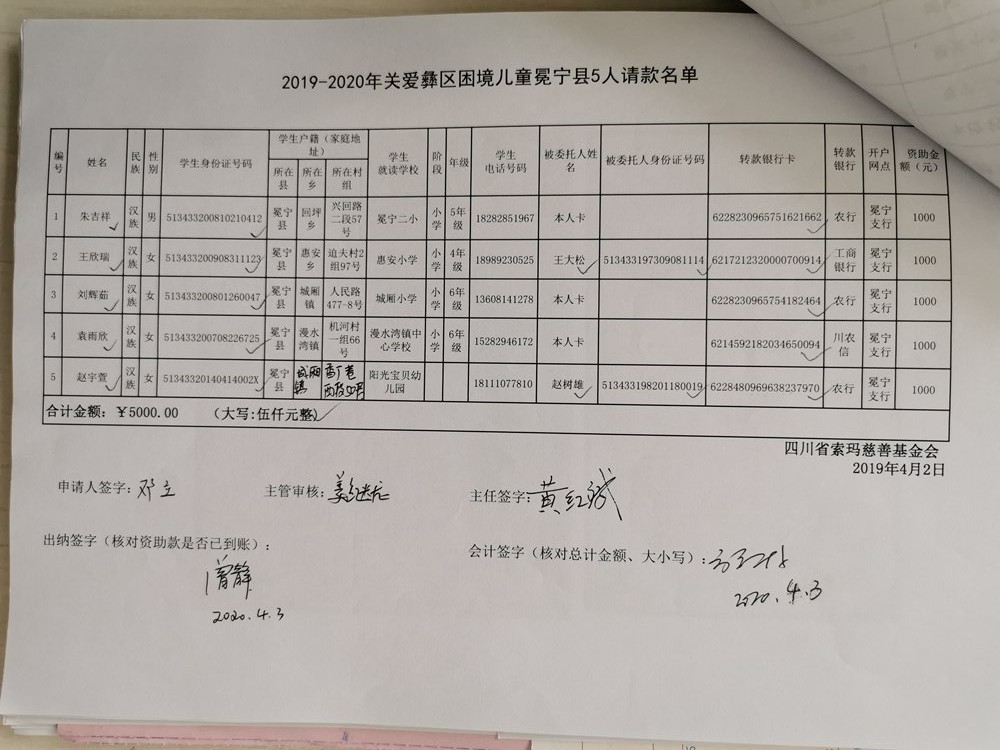 2019-2020年关爱彝区困境儿童冕宁县5人请款名单
编号 姓名 民族 性别 学生身份证号码 学生户籍（家庭地址） 所在县 所在乡 所在村组 学生就读学校 阶段 年级 学生电话号码 被委托人姓名 被委托人身份证号码 转款银行卡 转款银行 开户网点 资助金额（元）
1 朱吉祥 汉族 男 513433200810210412 冕宁县 回坪乡 兴回路二段57号 冕宁二小 小学 5年级 18282851967 本人卡 6228230965751621662 农行 冕宁支行 1000
2 王欣瑞 汉族 女 513433200908311123 冕宁县 惠安乡 迫夫村2组97号 惠安小学 小学 4年级 18989230525 王大松 513433197309081114 6217212320000700914 工商银行 冕宁支行 1000
3 刘辉茹 汉族 女 513433200801260047 冕宁县 城厢镇 人民路477-8号 城厢小学 小学 6年级 13608141278 本人卡 6228230965754182464 农行 冕宁支行 1000
4 袁雨欣 汉族 女 513433200708226725 冕宁县 漫水湾镇 机河村一组66号 漫水湾镇中心学校 小学 6年级 15282946172 本人卡 6214592182034650094 川农信 冕宁支行 1000
5 赵宇萱 汉族 女 51343320140414002X 冕宁县 城厢镇 阳光宝贝幼儿园 18111077810 赵树雄 513433198201180019 6228480969638237970 农行 冕宁支行 1000
合计金额：￥5000.00 （大写:伍仟元整）
四川省索玛慈善基金会
2019年4月2日
申请人签字：邓立 主管审核： 主任签字：黄红斌
出纳签字（核对资助款是否已到账）：
会计签字（核对总计金额、大小写）：
曾静
2020.4.3
2020.4.3